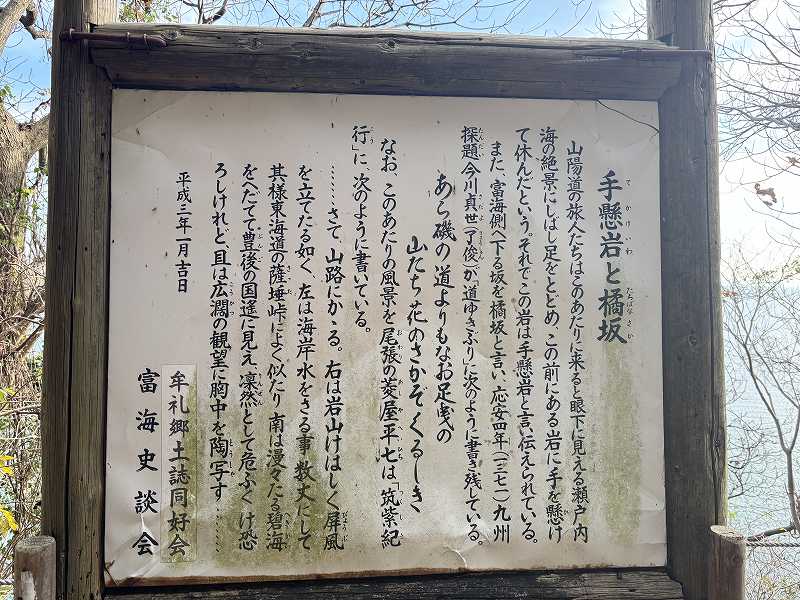 手懸岩と橘坂
山陽道の旅人たちはこのあたりに来ると眼下に見える瀬戸内
海の絶景にしばし足をとどめ、この前にある岩に手を懸け
て休んだという。それでこの岩は手懸岩と言い伝えられている。
また、富海側へ下る坂を橘坂と言い、応安四年(一三七一)九州
探題今川貞世(了俊)が「道ゆきふりに次のように書き残している。
あら磯の道よりもなお足曳の
山たち花のさかぞくるしき
なお、このあたりの風景を尾張の菱屋平七は「筑紫紀
行」に、次のように書いている。
……さて、山路にかゝる。右は岩山けはしく屏風
を立てたる如く、左は海岸水をさる事数丈にして
其様東海道の薩埵峠によく似たり、南は漫々たる碧海
をへだてて豊後の国遙に見え、凜然として危ふくけ恐
ろしけれど、且は広濶の観望に胸中を陶写す……
平成三年一月吉日
牟礼郷土誌同好会
富海史談会